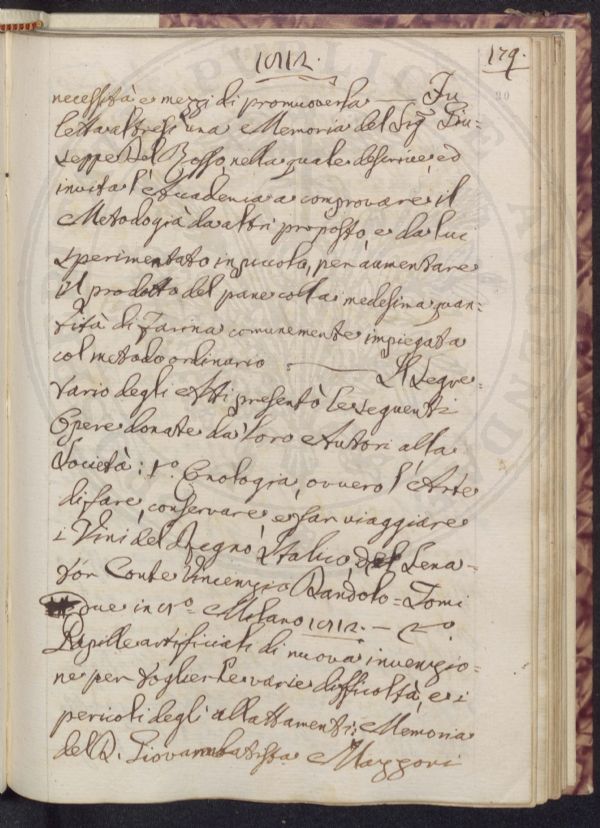 1812.
179.
necessità e mezzi di promuoverla — Fu
letta altresì una Memoria del Sig.r Giu-
seppe Del Rosso, nella quale descrive, ed
invita l'Accademia a comprovare il
Metodo già da altri proposto, e da lui
sperimentato in piccolo, per aumentare
il prodotto del pane colla medesima quan-
tità di Farina comunemente impiegata
col metodo ordinario — Il Segre-
tario degli Atti presentò le seguenti
Opere donate da' loro Autori alla
Società: 1.o Enologia, ovvero l'Arte
di fare, conservare, e far viaggiare
i Vini del Regno Italico, del Sena-
tor Conte Vincenzio Dandolo = Tomi
due in 8.o = Milano 1812. — 2.o
Papille artificiali di nuova invenzio-
ne per toglier le varie difficoltà, e i
pericoli degli allattamenti: Memoria
del D. Giovambatista Mazzoni